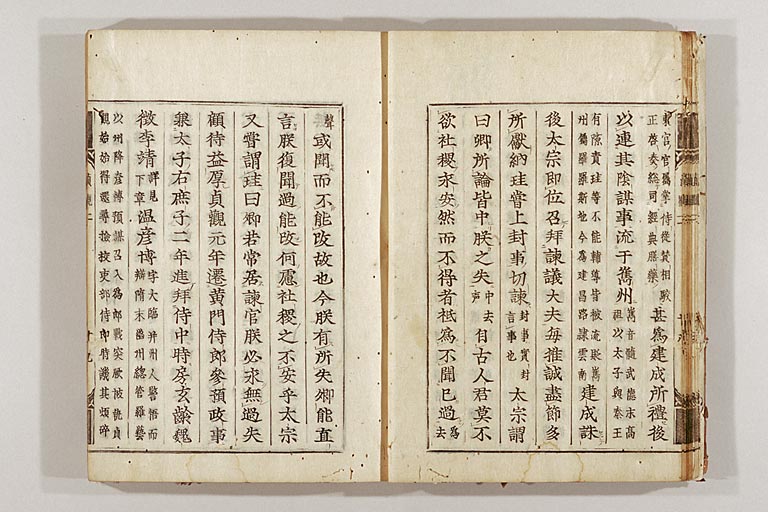 東宮官屬掌侍從贊相駮
正啓奏總司經典膳藥
甚爲建成所禮後
以連其陰謀事流于嶲州
嶲音髓武德末高
祖以太子與秦王
有隙責珪等不能輔導皆被流貶嶲
州羅羅斯地今爲建昌路隸雲南
建成誅
後太宗即位召拜諫議大夫每推誠盡節多
所獻納珪嘗上封事切諫
封事實封
言事也
太宗謂
曰卿所論皆中朕之失
中去
聲
自古人君莫不
欲社稷永安然而不得者祗爲不聞已過
爲
去
聲
或聞而不能改故也今朕有所失卿能直
言朕復聞過能改何慮社稷之不安乎太宗
又嘗謂珪曰卿若常居諫官朕必永無過失
顧待益厚貞觀元年遷黃門侍郎參預政事
兼太子右庶子二年進拜侍中時房玄齡魏
徵李靖
詳見
下章
溫彥博
字大臨并州人警悟而
辯隋末幽州總管羅藝
以州降彥博預謀召入爲郎戰突厥被執貞
觀始始得還尋檢校吏部侍郎時譏其煩碎